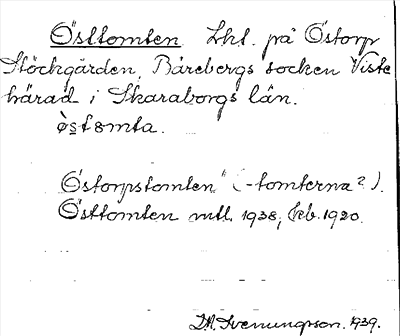 Östtomten Lht. på Östorp
Stöckgården, Bärebergs socken Viste
härad i Skaraborgs län.
östomta.
Östorpstomten" (-tomterna?).
Östtomten mtl. 1938, Keb. 1920.
D.A. Svenungsson. 1939.